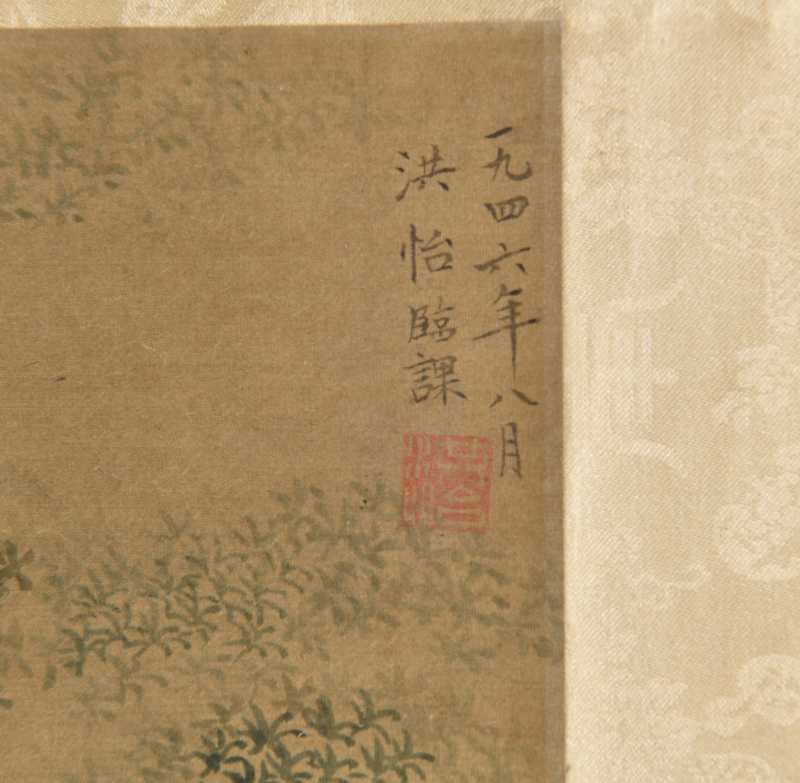 一九四六年八月
洪怡臨課